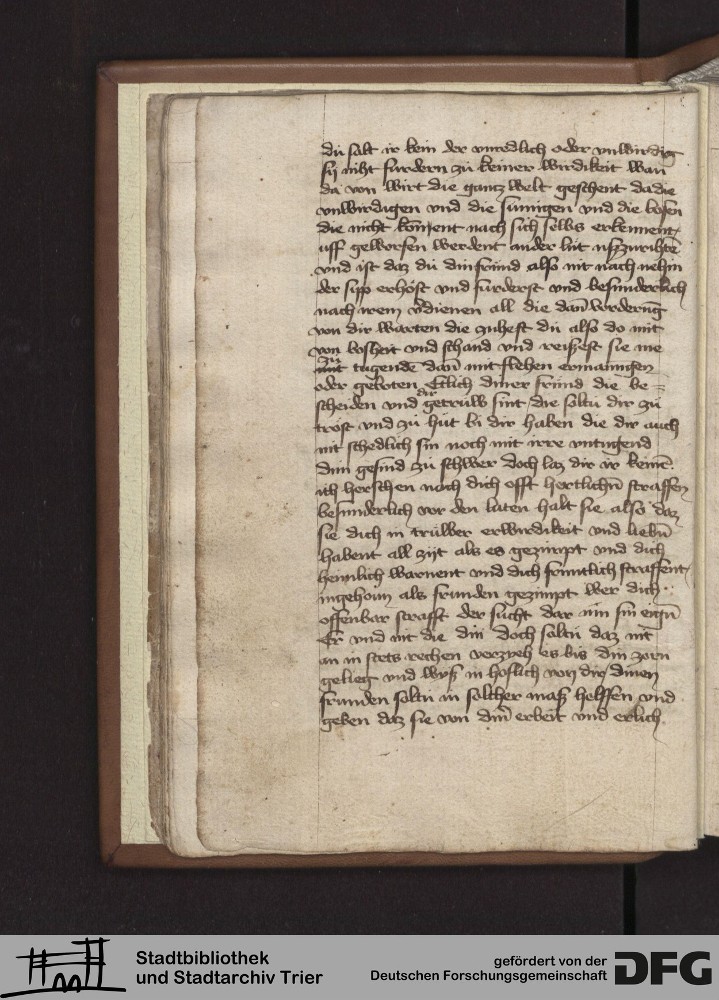 du salt ir kein der unredlich oder unwirdig
sy niht furdern zu keiner wirdikeit wan̄
da von wirt die gantz welt geschent da die
unwirdigen vnd die sunnigen vnd die bosen
die nicht konnent noch sich selbs erkennent
uff geworfen werdent ander lut uszzurihtē
vnd ist daz du din frund also nit nach nehin
der sipp erhöst vnd furderst vnd besunderlich
nach irem v̄dienen all die dan̄ vorderūg
von dir warten die zuhest du also do mit
von bosheit vnd schand vnd reissest sie me
zu
mit tugende dan̄ mit flehen ermanungen
oder geboten Etlich diner frund die be=
scheiden vnd dir getruw sint die soltu dir zu
trost vnd zu hut bi dir haben die dir auch
nit schedlich sin noch mit irre untugend
dim gesind zu schwer doch laz dir ir keinē
ich herschen noch dich offt hertlichn̄ straffen
besunderlich vor den luten halt sie also daz
sie dich in truwer erwirdikeit vnd liebin̄
habent all zijt als es gezimpt vnd dich
heimlich warnent vnd dich fruntlich straffent
ingehoim als frunden gezimpt wer dich
offenbar strafft der sucht dar inn sin eign̄
Er vnd nit die din doch soltu daz nit
an in stets rechen verzyeh es bis din zorn
gelieg vnd wyss in hoflich von dir dinen
frunden soltu in solcher mass helffen vnd
geben daz sie von dim̄ erbeit vnd erlich
Stadtbibliothek
und Stadtarchiv Trier
gefördert von der
Deutschen Forschungsgemeinschaft
DFG